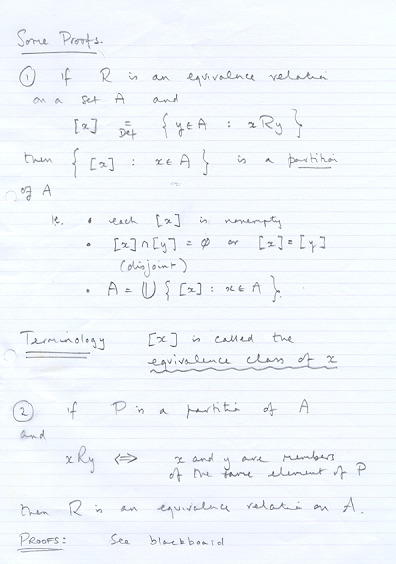 Some Proofs.
① If R is an equivalence relation
on a set A and
[x] =Def { y ∈ A : xRy }
then { [x] : x ∈ A } is a partition
of A
ie. • each [x] is nonempty
• [x] ∩ [y] = ∅ or [x] = [y]
(disjoint)
• A = ⋃ { [x] : x ∈ A }.
Terminology [x] is called the
equivalence class of x
② If P is a partition of A
and
xRy ⟺ x and y are members
of the same element of P
then R is an equivalence relation on A.
PROOFS: See blackboard